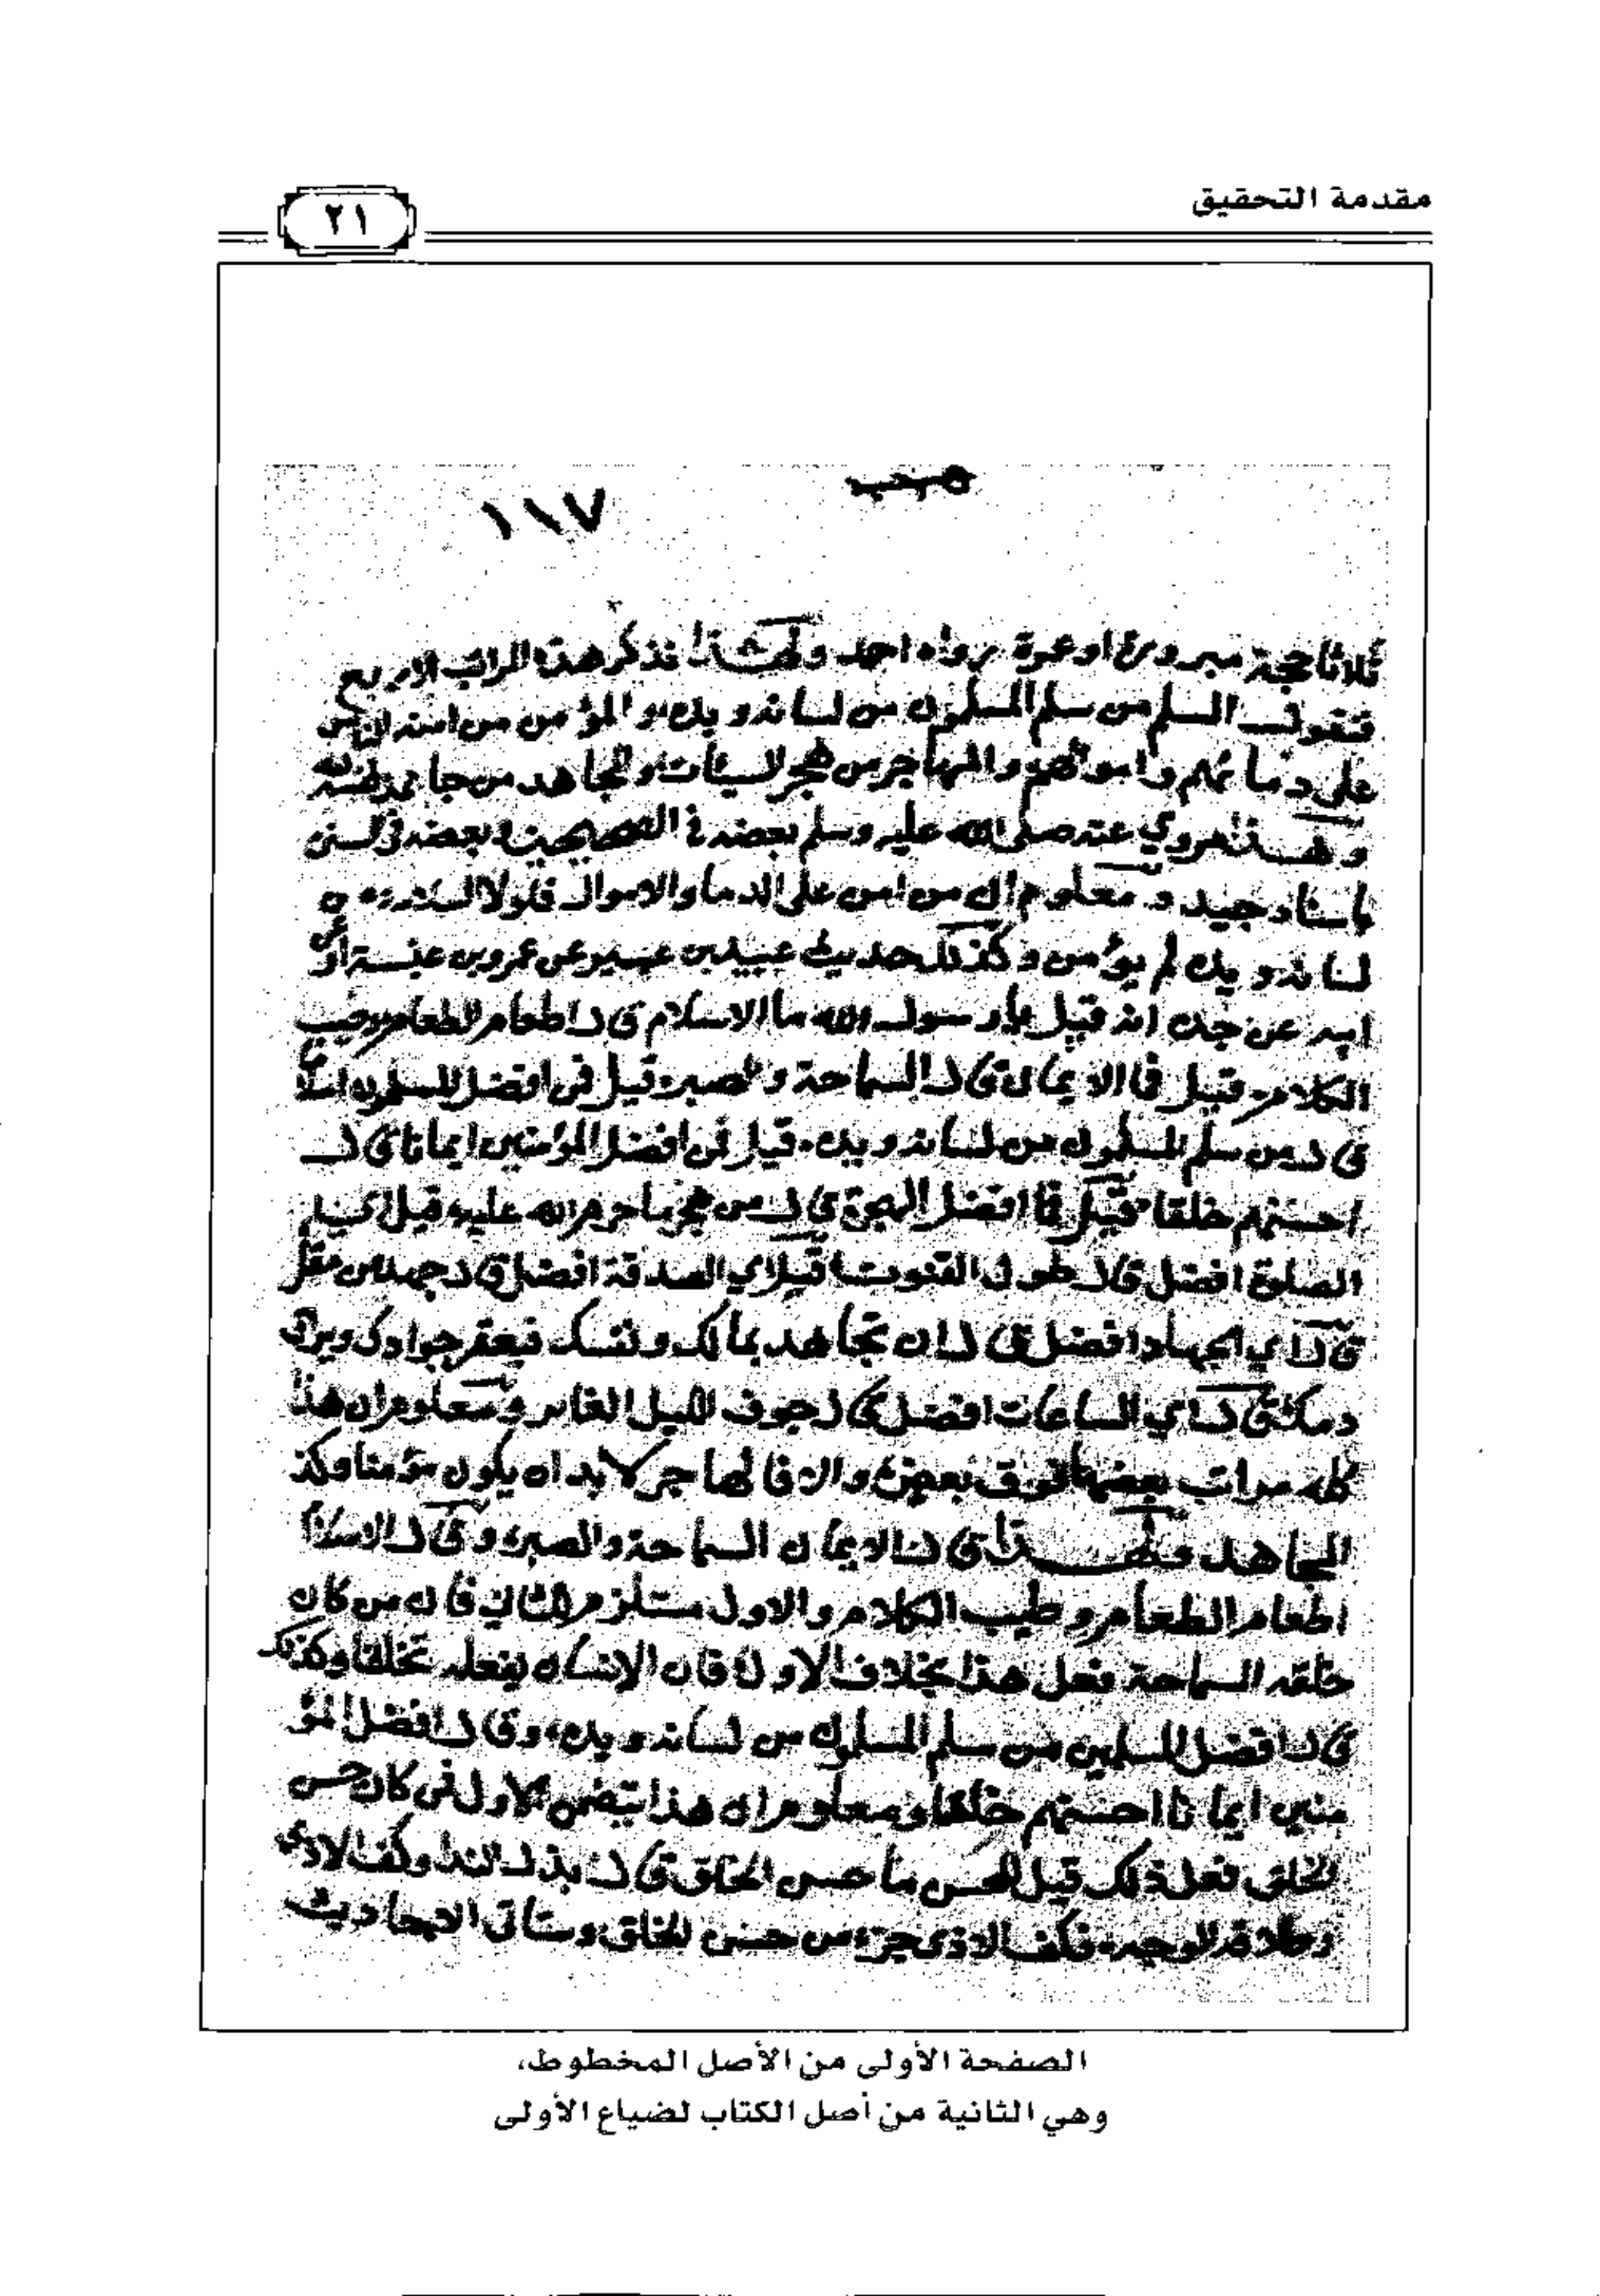 مقدمة التحقيق
٢١
١١٧
ثلاثا حجة مبرورة او عمرة رواه احمد ولهذا نذكر هذه المراتب الاربع
فنقول المسلم من سلم المسلمون من لسانه ويده والمؤمن من امنه الناس
على دمائهم واموالهم والمهاجر من هجر السيئات والمجاهد من جاهد نفسه لله
وهذا مروي عنه صلى الله عليه وسلم بعضه في الصحيحين وبعضه في السنن
باسناد جيد ومعلوم ان من امن على الدما والاموال فلولا سلامة من
لسانه ويده لم يؤمن وكذلك حديث عبيد بن عمير عن عمرو بن عبسة او عن
ابيه عن جده انه قيل يا رسول الله ما الاسلام قال اطعام الطعام وطيب
الكلام قيل فما الايمان قال السماحة والصبر قيل فمن افضل المسلمين اسلاما
قال من سلم المسلمون من لسانه ويده قيل فمن افضل المؤمنين ايمانا قال
احسنهم خلقا قيل فما افضل الهجرة قال من هجر ما حرم الله عليه قيل اي
الصلوة افضل قال طول القنوت قيل اي الصدقة افضل قال جهد من مقل
قال اي الجهاد افضل قال ان تجاهد بمالك ونفسك فيعقر جوادك ويراق
دمك قال اي الساعات افضل قال جوف الليل الغابر ومعلوم ان هذا
كله مراتب بعضها فوق بعض والا فالمهاجر لا بد ان يكون مؤمنا وكذا
المجاهد ولهذا قال الايمان السماحة والصبر وقال الاسلام
اطعام الطعام وطيب الكلام والاول مستلزم الثاني فان من كان
خلقه السماحة فعل هذا بخلاف الاول فان الانسان يفعله تخلقا وكذلك
قال افضل المسلمين من سلم المسلمون من لسانه ويده وقال افضل المؤ
منين ايمانا احسنهم خلقا ومعلوم ان هذا يتضمن الاول فمن كان حسن
الخلق فعل ذلك قيل للحسن ما حسن الخلق قال بذل الندا وكف الاذى
وطلاقة الوجه فكف الاذى جزء من حسن الخلق وستأتي الاحاديث
الصفحة الأولى من الأصل المخطوط،
وهي الثانية من أصل الكتاب لضياع الأولى